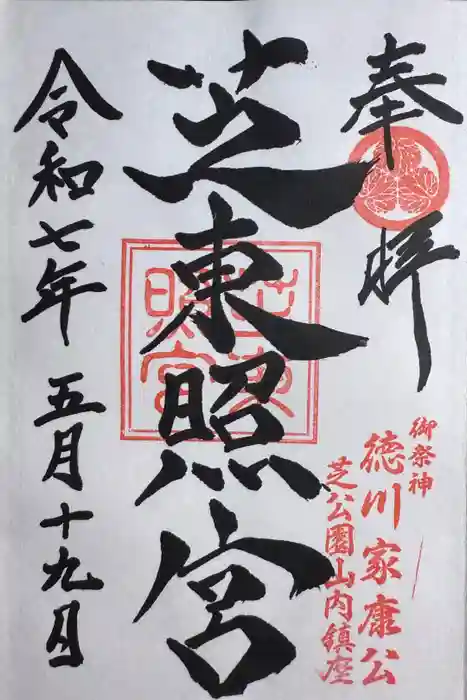 奉拝
御祭神
徳川家康公
芝公園山内鎮座
芝東照宮
令和七年 五月十九日